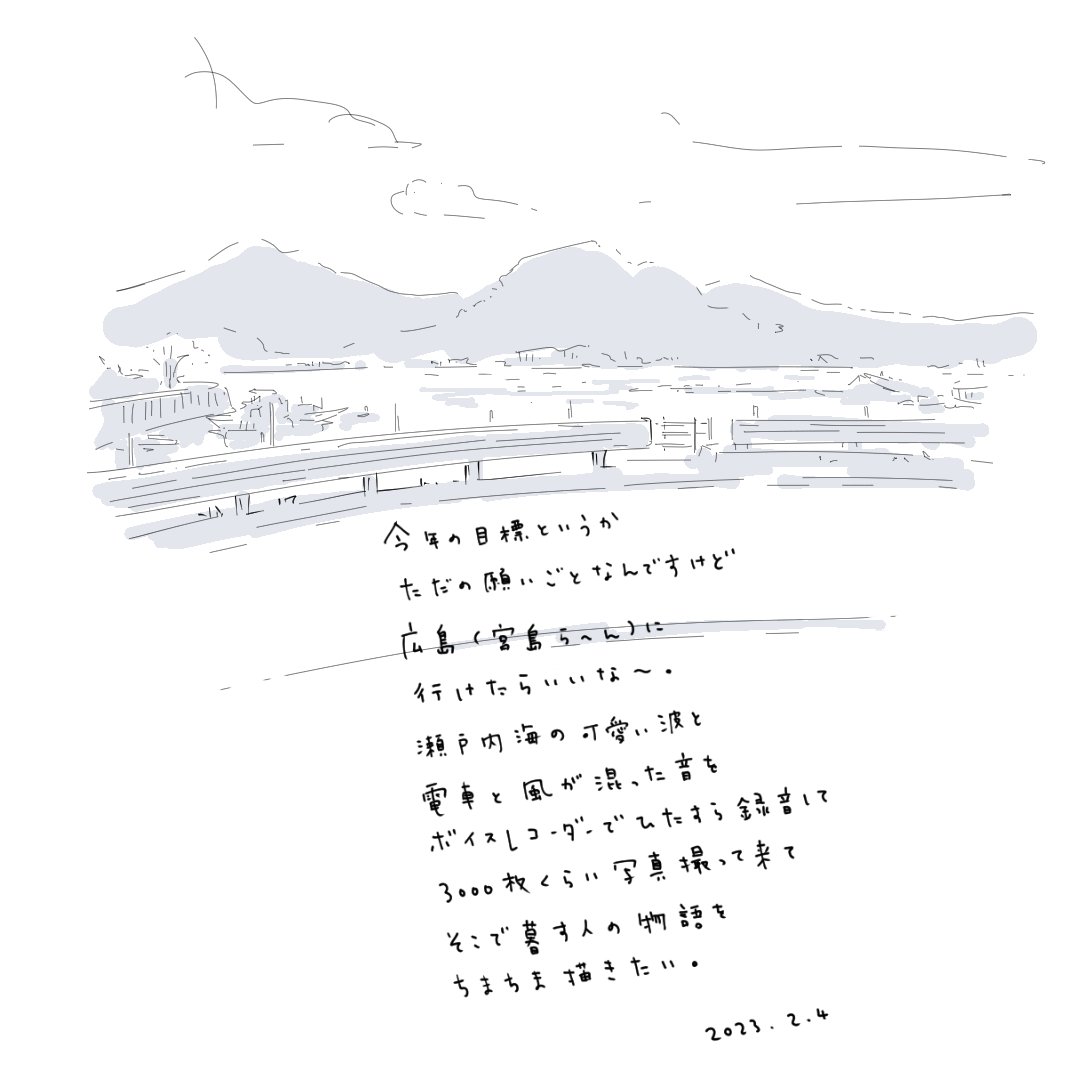 今年の目標というか
ただの願いごとなんですけど
広島(宮島ら〜ん)に
行けたらいいな〜.
瀬戸内海の可愛い波と
電車と風が混った音を
ボイスレコーダーでひたすら録音して
3000枚くらい写真撮って来て
そこで暮す人の物語を
ちまちま描きたい.
2023.2.4